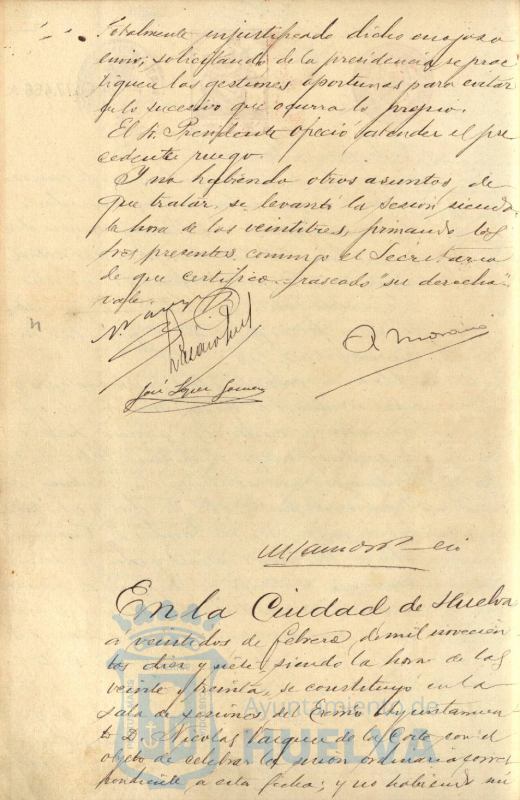 totalmente injustificado dicho enojoso
envio; solicitando de la presidencia se prac
tiquen las gestiones oportunas para evitar
en lo sucesivo que ocurra lo propio.
El Sr. Presidente ofrecio atender el pre
cedente ruego.
Y no habiendo otros asuntos, de
que tratar, se levantó la sesión siendo
la hora de las veintitres, firmando los
Sres presentes, conmigo el Secretario
de que certifico. = raspado "su derecha"
vale.
A Moreno
José López Gomez
En la Ciudad de Huelva
a veintidos de febrero de mil novecien
tos diez y siete, siendo la hora de las
veinte y treinta, se constituyó en la
sala de sesiones del Excmo Ayuntamien
to D. Nicolas Vazquez de la Corte, con el
objeto de celebrar la sesión ordinaria corres
pondiente a esta fecha; y no habiendo nú
Ayuntamiento de
HUELVA